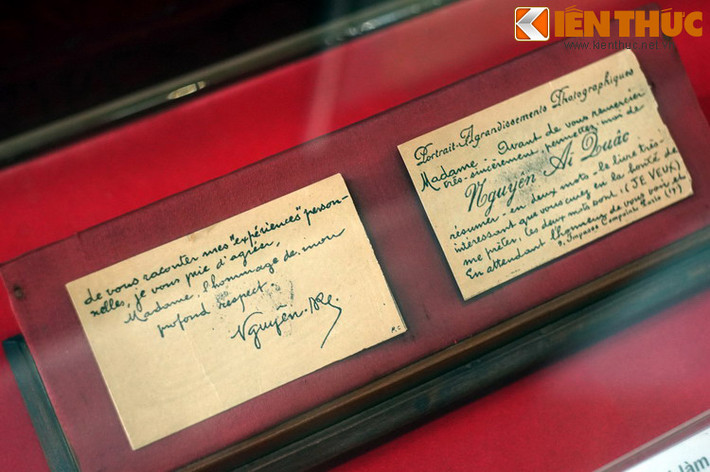 KIẾN THỨC
www.kienthuc.net.vn
Portrait-Agrandissements Photographiques
Madame - Avant de vous remercier
très-sincèrement, permettez moi de
Nguyên Aï Quâc
résumer - en deux mots - le livre très-
intéressant que vous avez eu la bonté de
me prêter, les deux mots sont: (JE VEUX)
En attendant l'honneur de vous voir et
9, Impasse Compoint Paris (17)
de vous raconter mes "expériences" person-
nelles, je vous prie d'agréer,
Madame, l'hommage de mon
profond respect.
Nguyên
P.C
làm